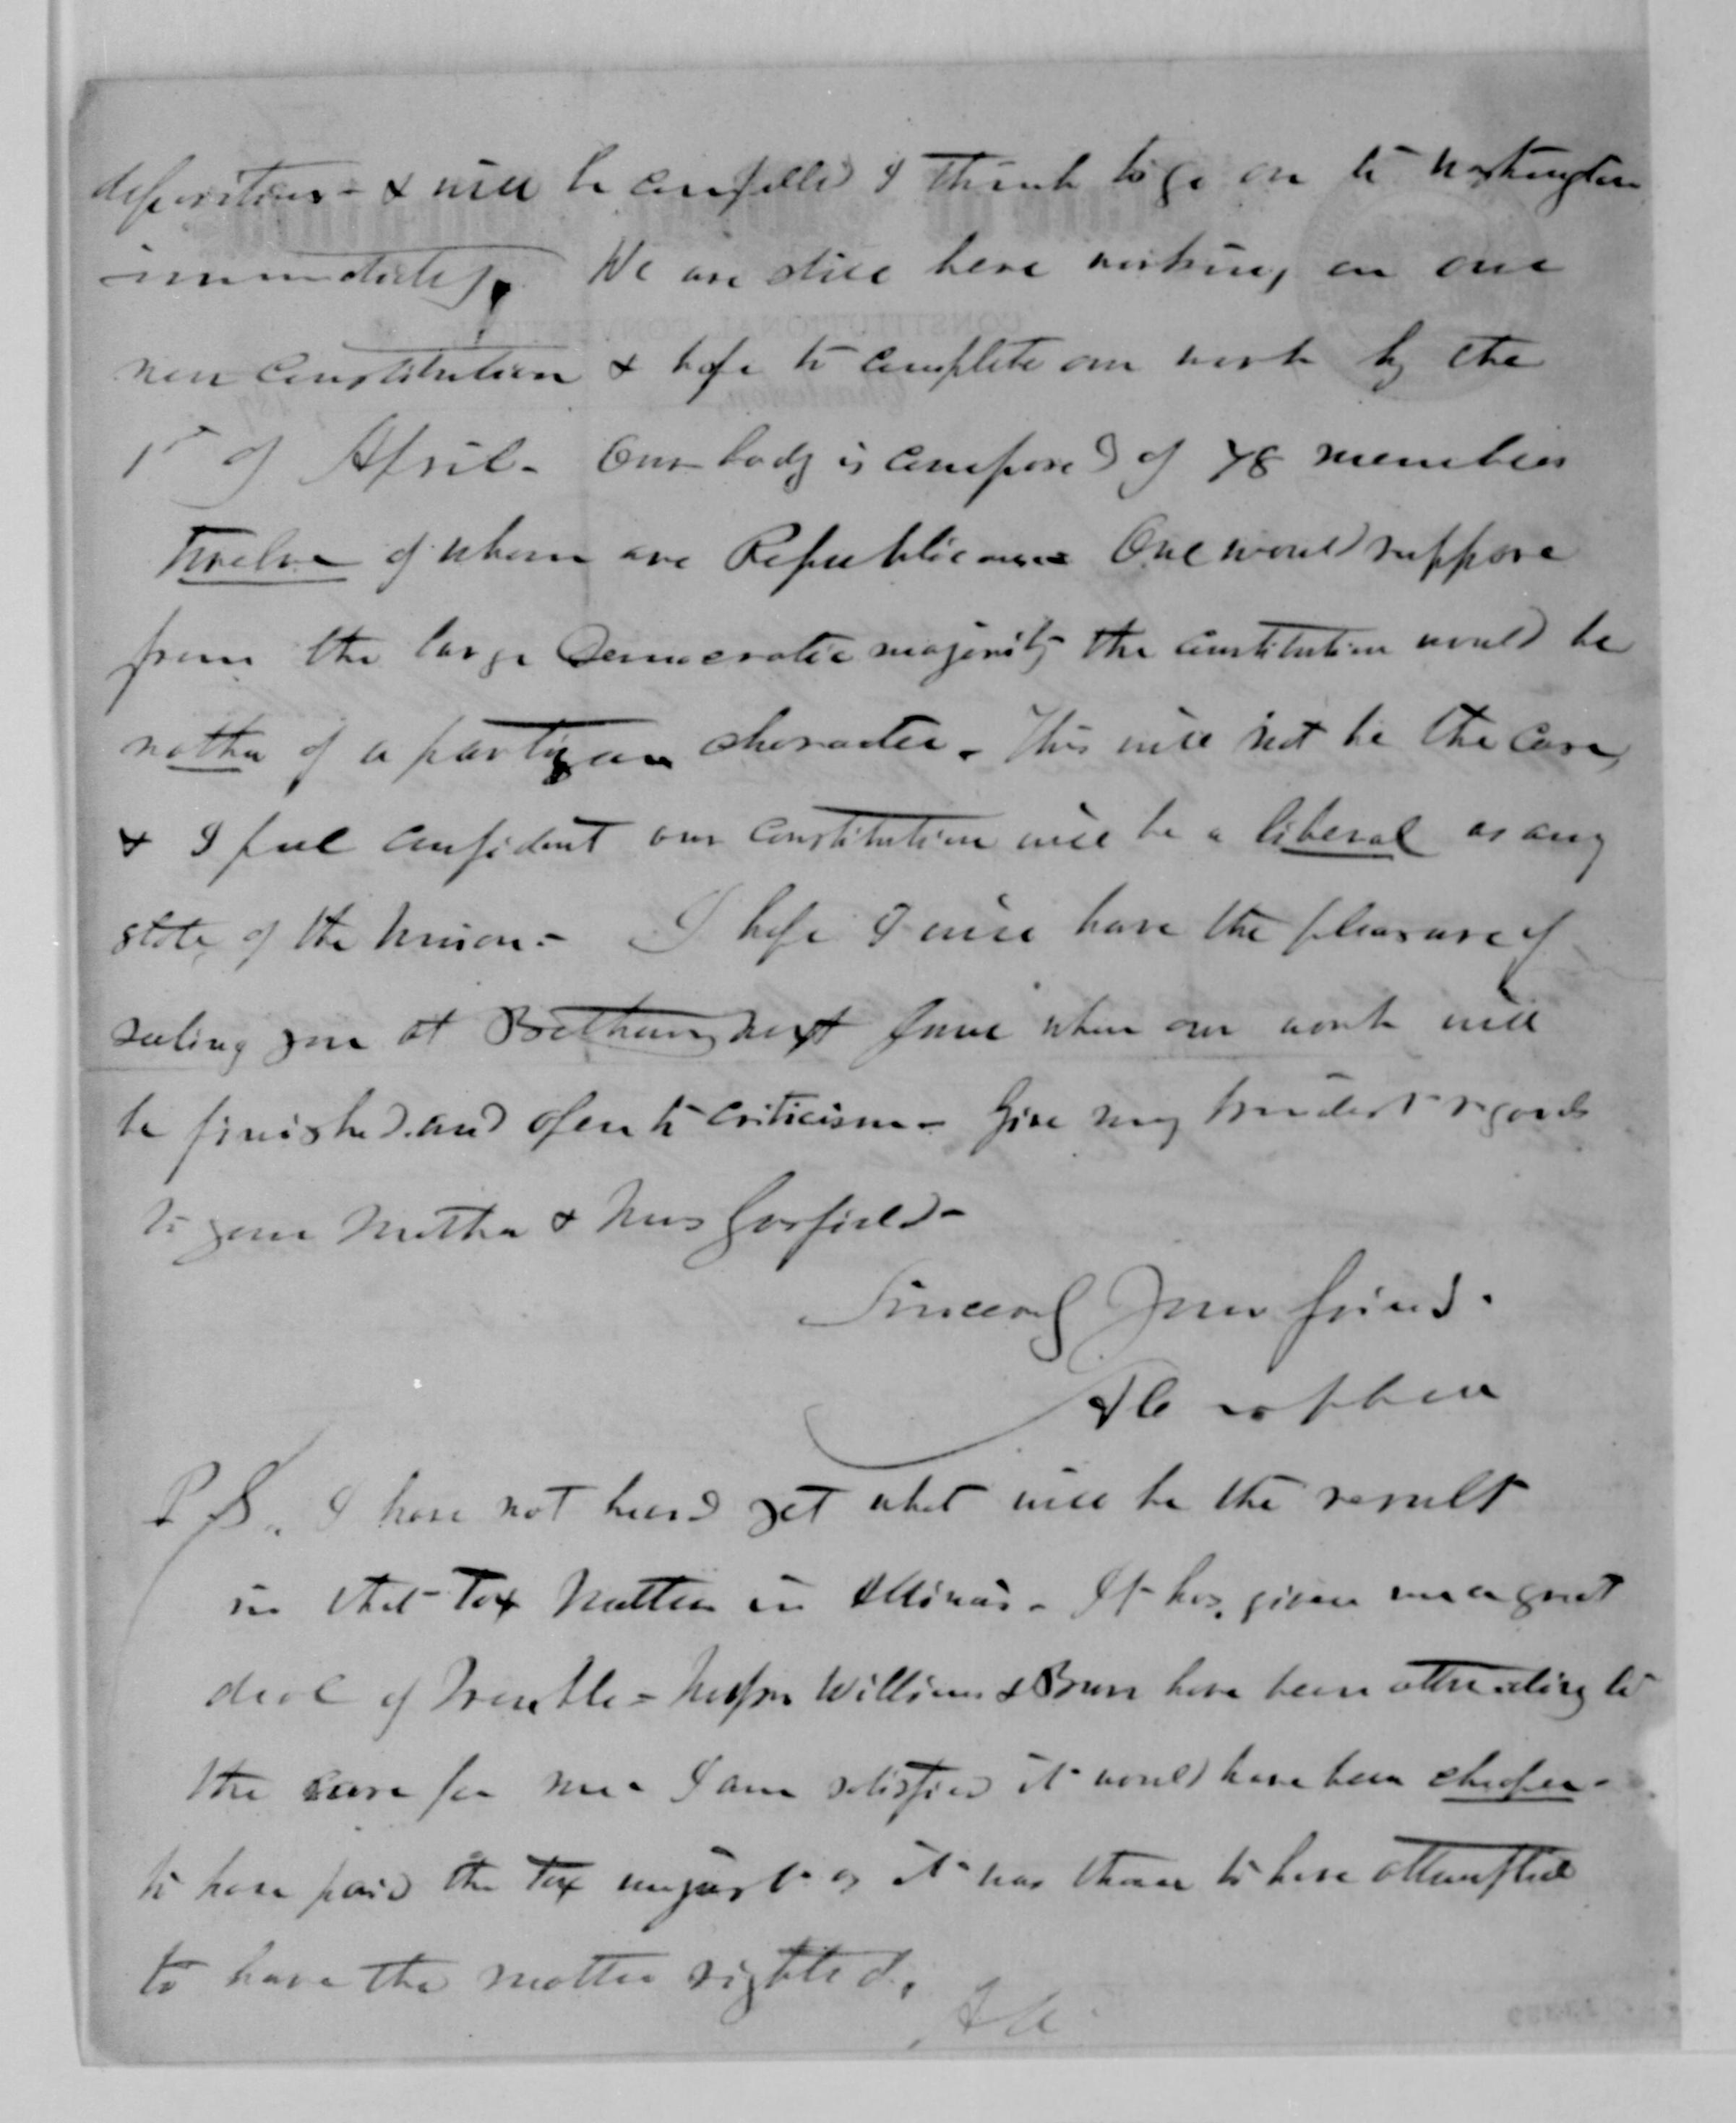 depositions - & will be compelled I think to go on to Washington
immediately. We are still here working on our
new constitution & hope to complete our work by the
1st of April - Our body is composed of 78 members
Twelve of whom are Republicans - One would suppose
from the large Democratic majority the constitution would be
rather of a partizan character. This will not be the case,
& I feel confident our constitution will be a liberal as any
state of the Union - I hope I will have the pleasure of
seeing you at Bethany next June when our work will
be finished and open to criticism - Give my kindest regards
to your Mother & Mrs Garfield -
Sincerely Your friend.
P S. I have not heard yet what will be the result
in that Tax Matter in Illinois - It has given me a great
deal of trouble - Messrs Williams & Burr have been attending to
the case for me - I am satisfied it would have been cheaper -
to have paid the Tax unjust as it was than to have attempted
to have the matter righted.
CONSTITUTIONAL CONVENTION
Charleston, 187